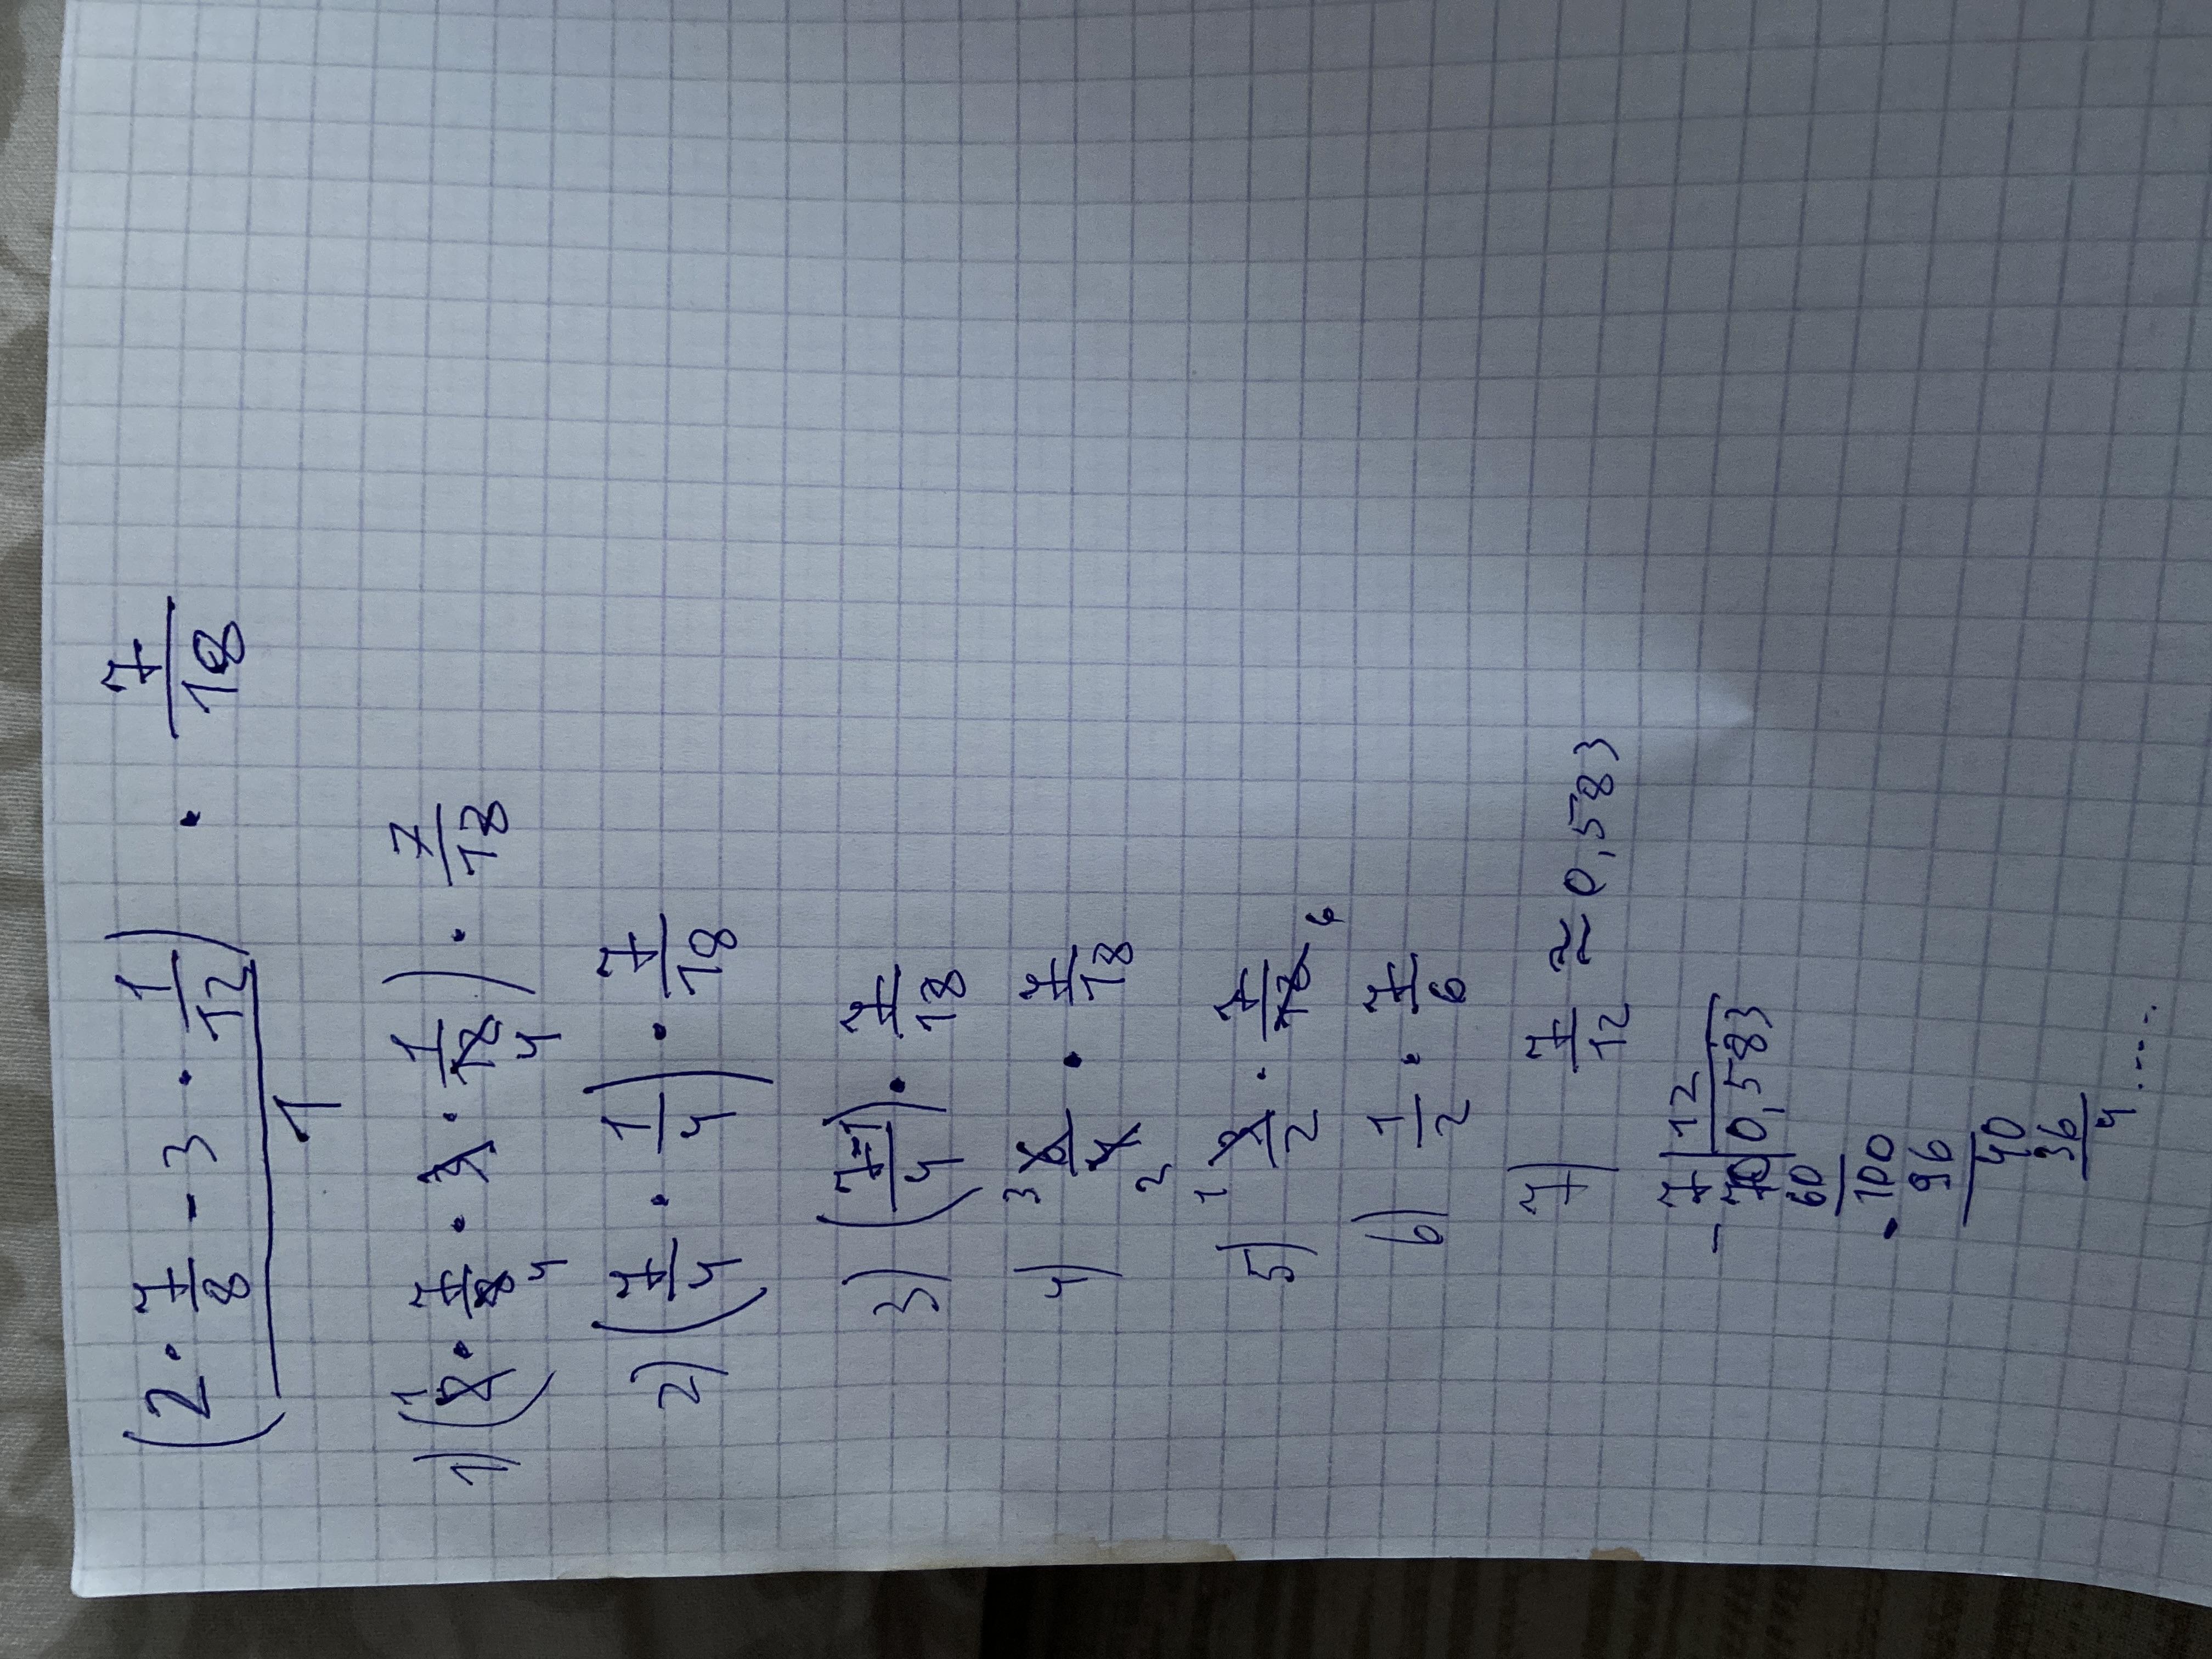 (2 · 7/8 - 3 · 1/12) · 7/18
1
1) (2 · 7/8 · 3 · 1/12) · 7/18
1 4 4
2) (7/4 · 1/4) · 7/18
3) (7-1/4) · 7/18
4) 6/4 · 7/18
3 2
5) 3/2 · 7/18
1 6
6) 1/2 · 7/6
7) 7/12 ≈ 0,583
7 | 12
- 70 | 0,583
60
100
96
40
36
4 ....